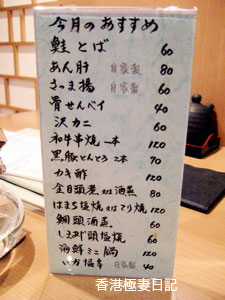 今月のおすすめ
鮭とば 60
あん肝 自家製 80
さつま揚 自家製 60
骨せんベイ 40
沢カニ 60
和牛串焼一本 120
黒豚とんとろ 2本 70
カキ酢 120
金目頭煮又は酒蒸 80
はまち塩焼又はてり焼 120
鯛頭酒蒸 60
しまあじ頭塩焼 60
海鮮ミニ鍋 120
いか塩辛 自家製 40
香港極妻日記